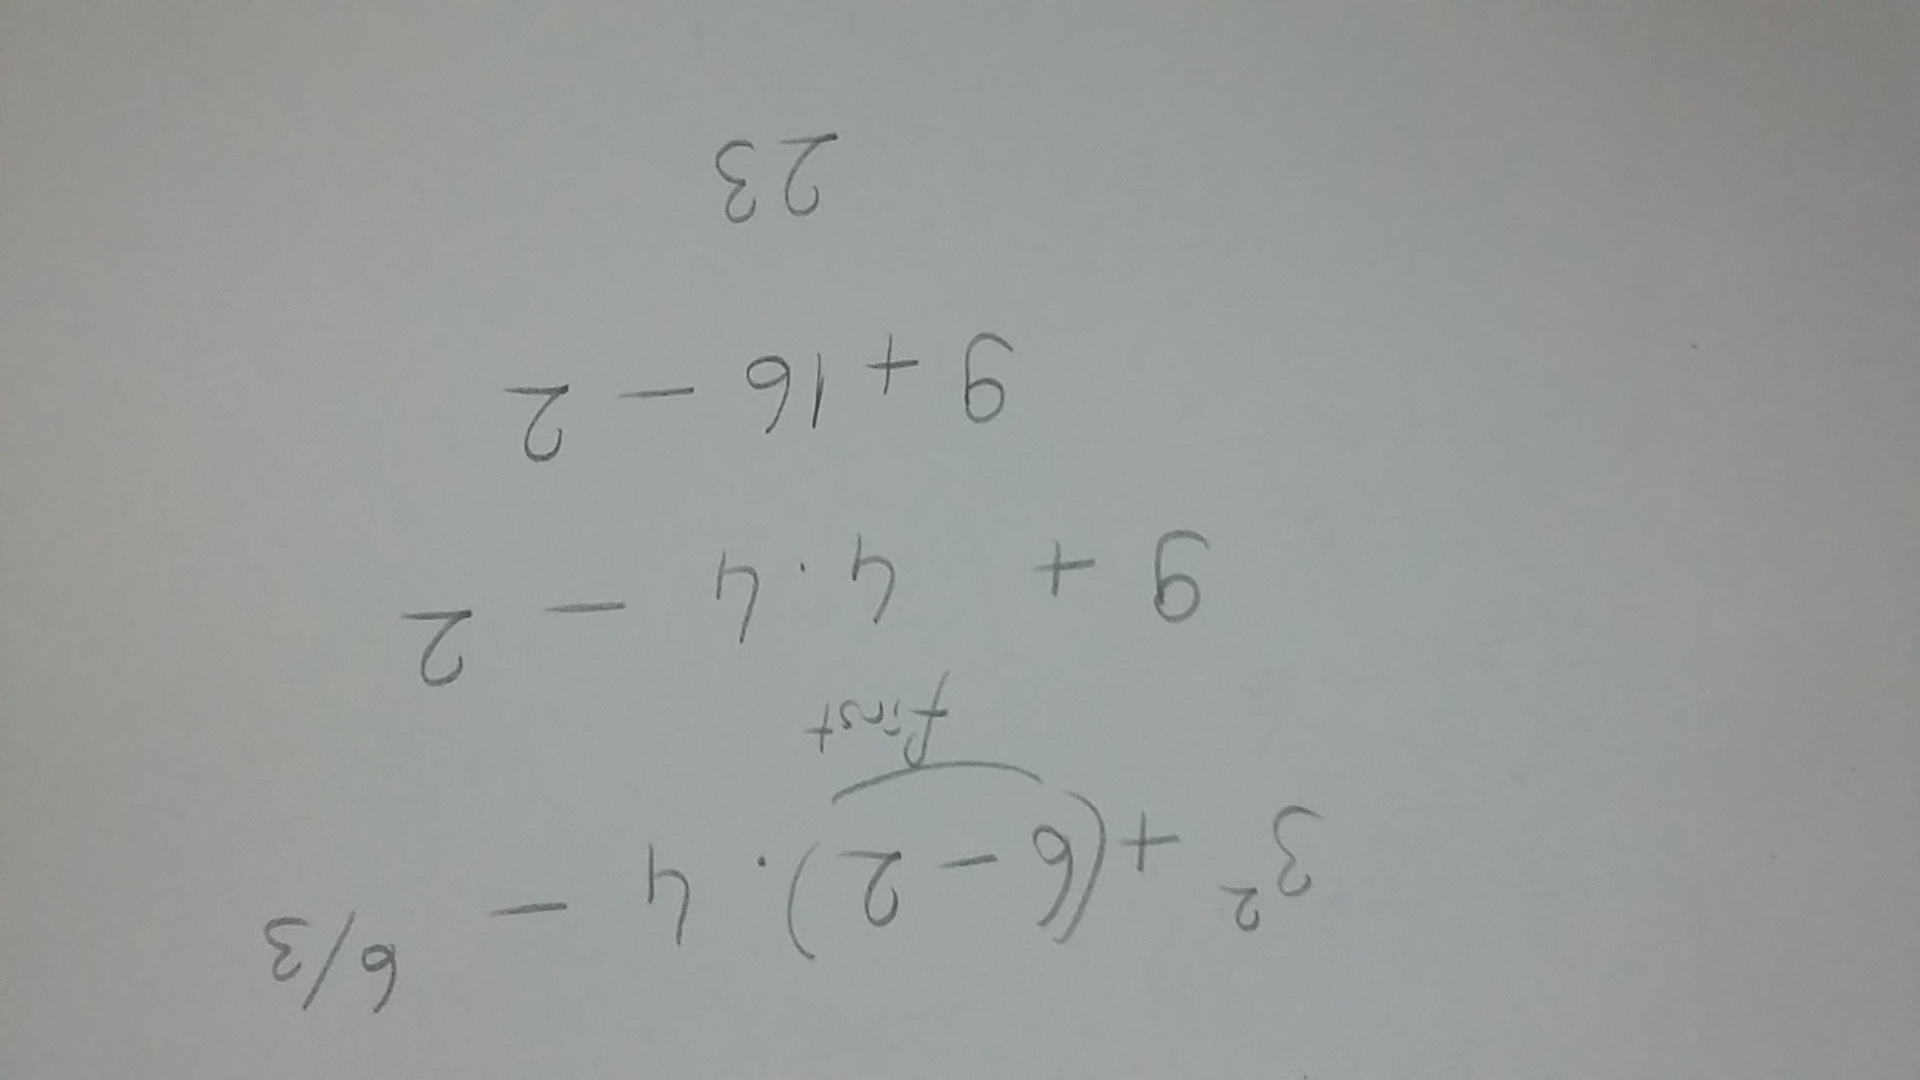 3² + (6 - 2) · 4 - 6/3
first
9 + 4 · 4 - 2
9 + 16 - 2
23